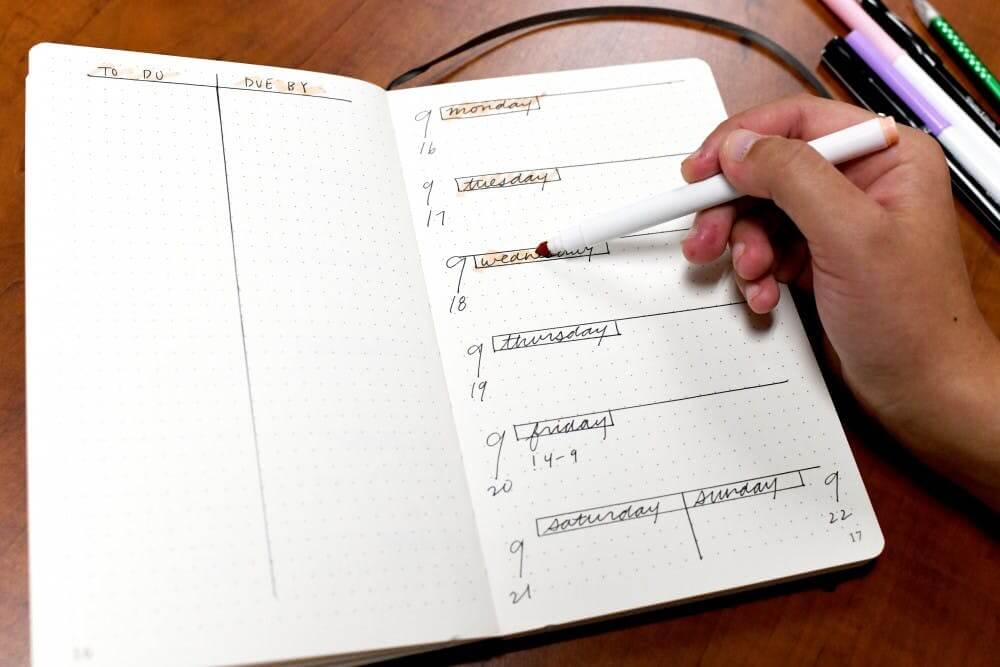 TO DO
DUE BY
9 monday
16
9 tuesday
17
9 wednesday
18
9 thursday
19
9 friday
20
! 4-9
9 saturday
21
sunday 9
22
17
16